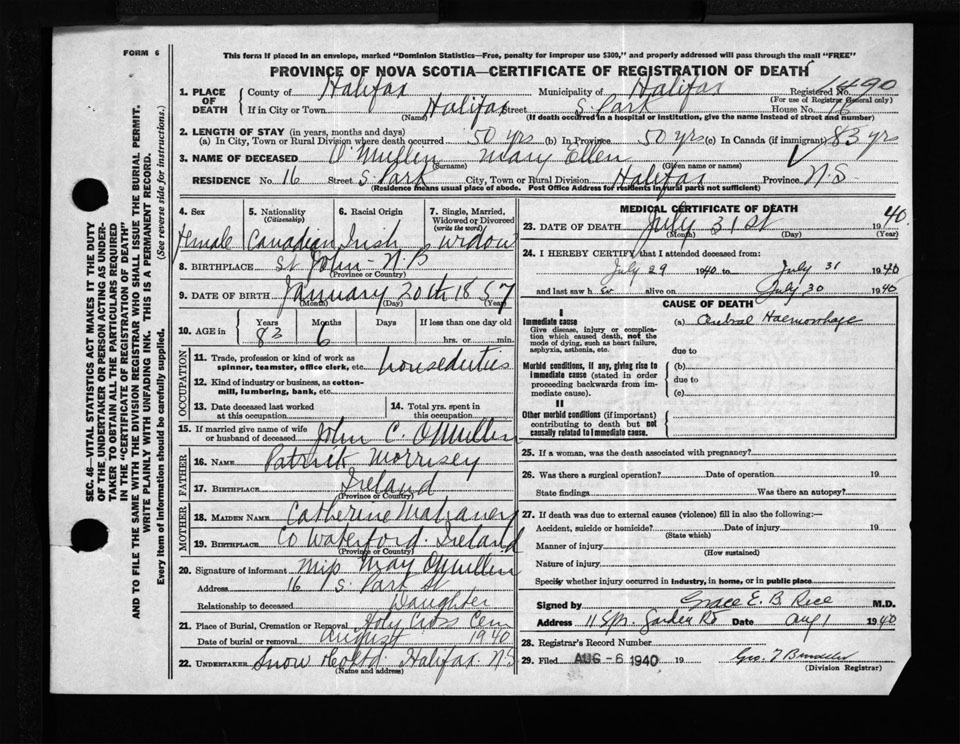 FORM 6
This form if placed in an envelope, marked "Dominion Statistics—Free, penalty for improper use $300," and properly addressed will pass through the mail "FREE"
PROVINCE OF NOVA SCOTIA—CERTIFICATE OF REGISTRATION OF DEATH
1. PLACE OF DEATH County of Halifax Municipality of Halifax Registered No. 1490
(For use of Registrar General only)
If in City or Town Halifax Street S. Park House No. 16
(Name) (If death occurred in a hospital or institution, give the name instead of street and number)
2. LENGTH OF STAY (in years, months and days)
(a) In City, Town or Rural Division where death occurred 50 yrs (b) In Province 50 yrs (c) In Canada (if immigrant) 83 yrs
3. NAME OF DECEASED O'Mullin Mary Ellen
(Surname) (Given name or names)
RESIDENCE No. 16 Street S. Park City, Town or Rural Division Halifax Province N.S.
(Residence means usual place of abode. Post Office Address for residents in rural parts not sufficient)
4. Sex 5. Nationality (Citizenship) 6. Racial Origin 7. Single, Married, Widowed or Divorced (write the word)
Female Canadian Irish widow
8. BIRTHPLACE St John - N.B
(Province or Country)
9. DATE OF BIRTH January 20th 1857
(Month) (Day) (Year)
10. AGE in Years Months Days If less than one day old
83 6 hrs. or min.
OCCUPATION
11. Trade, profession or kind of work as spinner, teamster, office clerk, etc. house duties
12. Kind of industry or business, as cotton-mill, lumbering, bank, etc.
13. Date deceased last worked at this occupation 14. Total yrs. spent in this occupation
15. If married give name of wife or husband of deceased John C. O'Mullin
FATHER
16. NAME Patrick Morrisey
17. BIRTHPLACE Ireland
(Province or Country)
MOTHER
18. MAIDEN NAME Catherine
19. BIRTHPLACE Co Waterford. Ireland
(Province or Country)
20. Signature of informant Miss May O'Mullin
Address 16 S. Park St
Relationship to deceased Daughter
21. Place of Burial, Cremation or Removal Holy Cross Cem
Date of burial or removal August 1940
22. UNDERTAKER Snow Halifax N.S
(Name and Address)
MEDICAL CERTIFICATE OF DEATH
23. DATE OF DEATH July 31st 1940
(Month) (Day) (Year)
24. I HEREBY CERTIFY that I attended deceased from:
July 29 1940 to July 31 1940
and last saw her alive on July 30 1940
CAUSE OF DEATH
I
Immediate cause (a) Cerebral Haemorrhage
Give disease, injury or complication which caused death, not the mode of dying, such as heart failure, asphyxia, asthenia, etc.
due to
Morbid conditions, if any, giving rise to immediate cause (stated in order proceeding backwards from immediate cause).
(b)
due to
(c)
II
Other morbid conditions (if important) contributing to death but not causally related to immediate cause.
25. If a woman, was the death associated with pregnancy?
26. Was there a surgical operation? Date of operation 19
State findings Was there an autopsy?
27. If death was due to external causes (violence) fill in also the following:—
Accident, suicide or homicide? Date of injury 19
(State which)
Manner of injury
(How sustained)
Nature of injury
Specify whether injury occurred in industry, in home, or in public place
Signed by Grace E. B. Rice M.D.
Address Garden Rd Date Aug 1 1940
28. Registrar's Record Number
29. Filed AUG - 6 1940 19 Geo. T
(Division Registrar)
SEC. 46—VITAL STATISTICS ACT MAKES IT THE DUTY
OF THE UNDERTAKER OR PERSON ACTING AS UNDER-
TAKER TO OBTAIN ALL THE PARTICULARS REQUIRED
IN THE "CERTIFICATE OF REGISTRATION OF DEATH"
AND TO FILE THE SAME WITH THE DIVISION REGISTRAR WHO SHALL ISSUE THE BURIAL PERMIT.
WRITE PLAINLY WITH UNFADING INK. THIS IS A PERMANENT RECORD.
Every item of information should be carefully supplied. (See reverse side for instructions.)